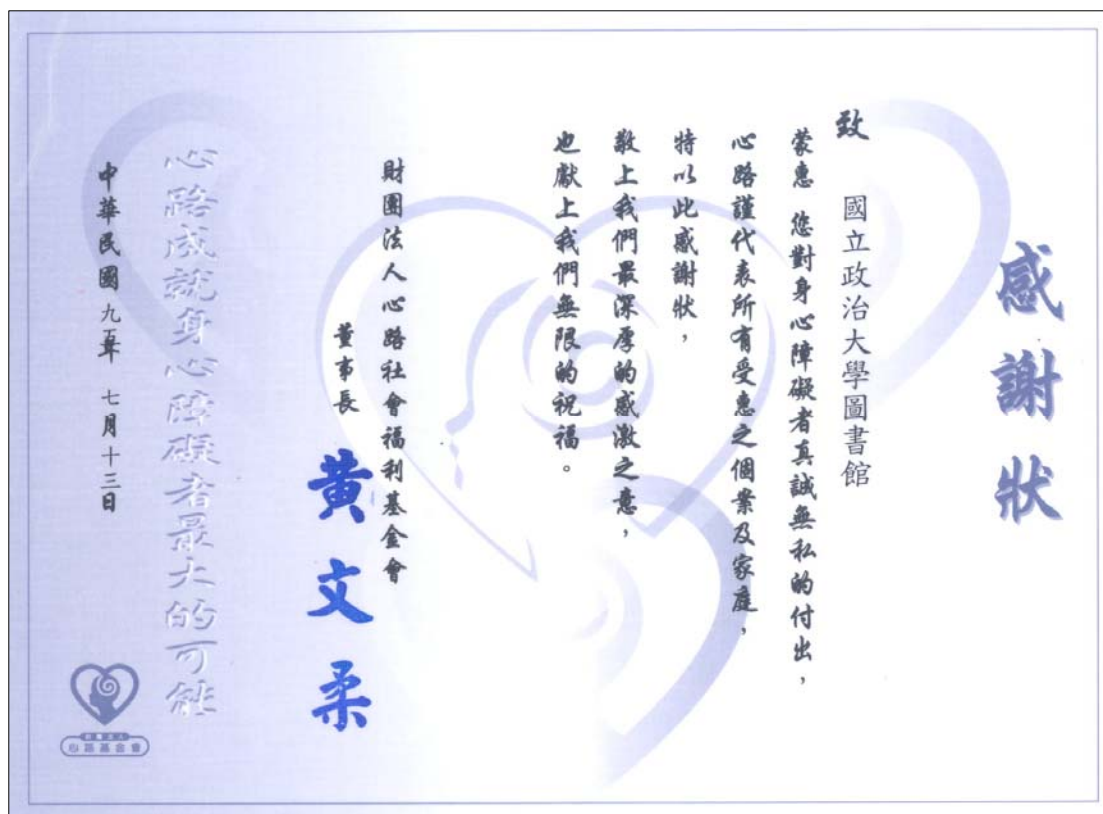 感謝狀
致 國立政治大學圖書館
蒙惠 您對身心障礙者真誠無私的付出，
心路謹代表所有受惠之個案及家庭，
特以此感謝狀，
敬上我們最深厚的感激之意，
也獻上我們無限的祝福。
財團法人心路社會福利基金會
董事長 黃文柔
心路成就身心障礙者最大的可能
中華民國 九五年 七月十三日
心路基金會